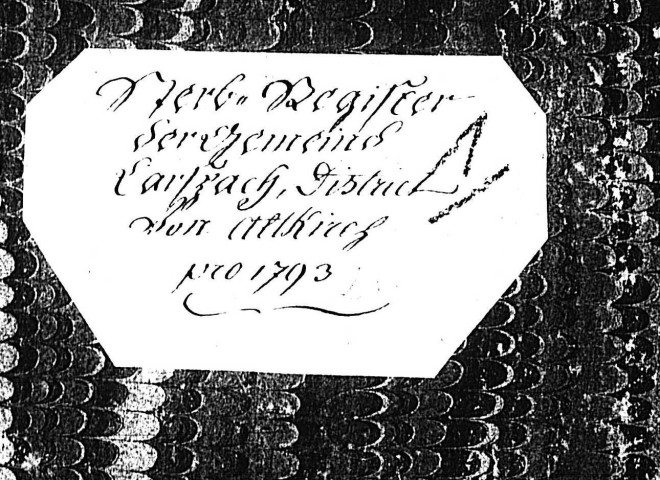 Sterb=Register
der Gemeind
Carspach, District
von Altkirch
pro 1793